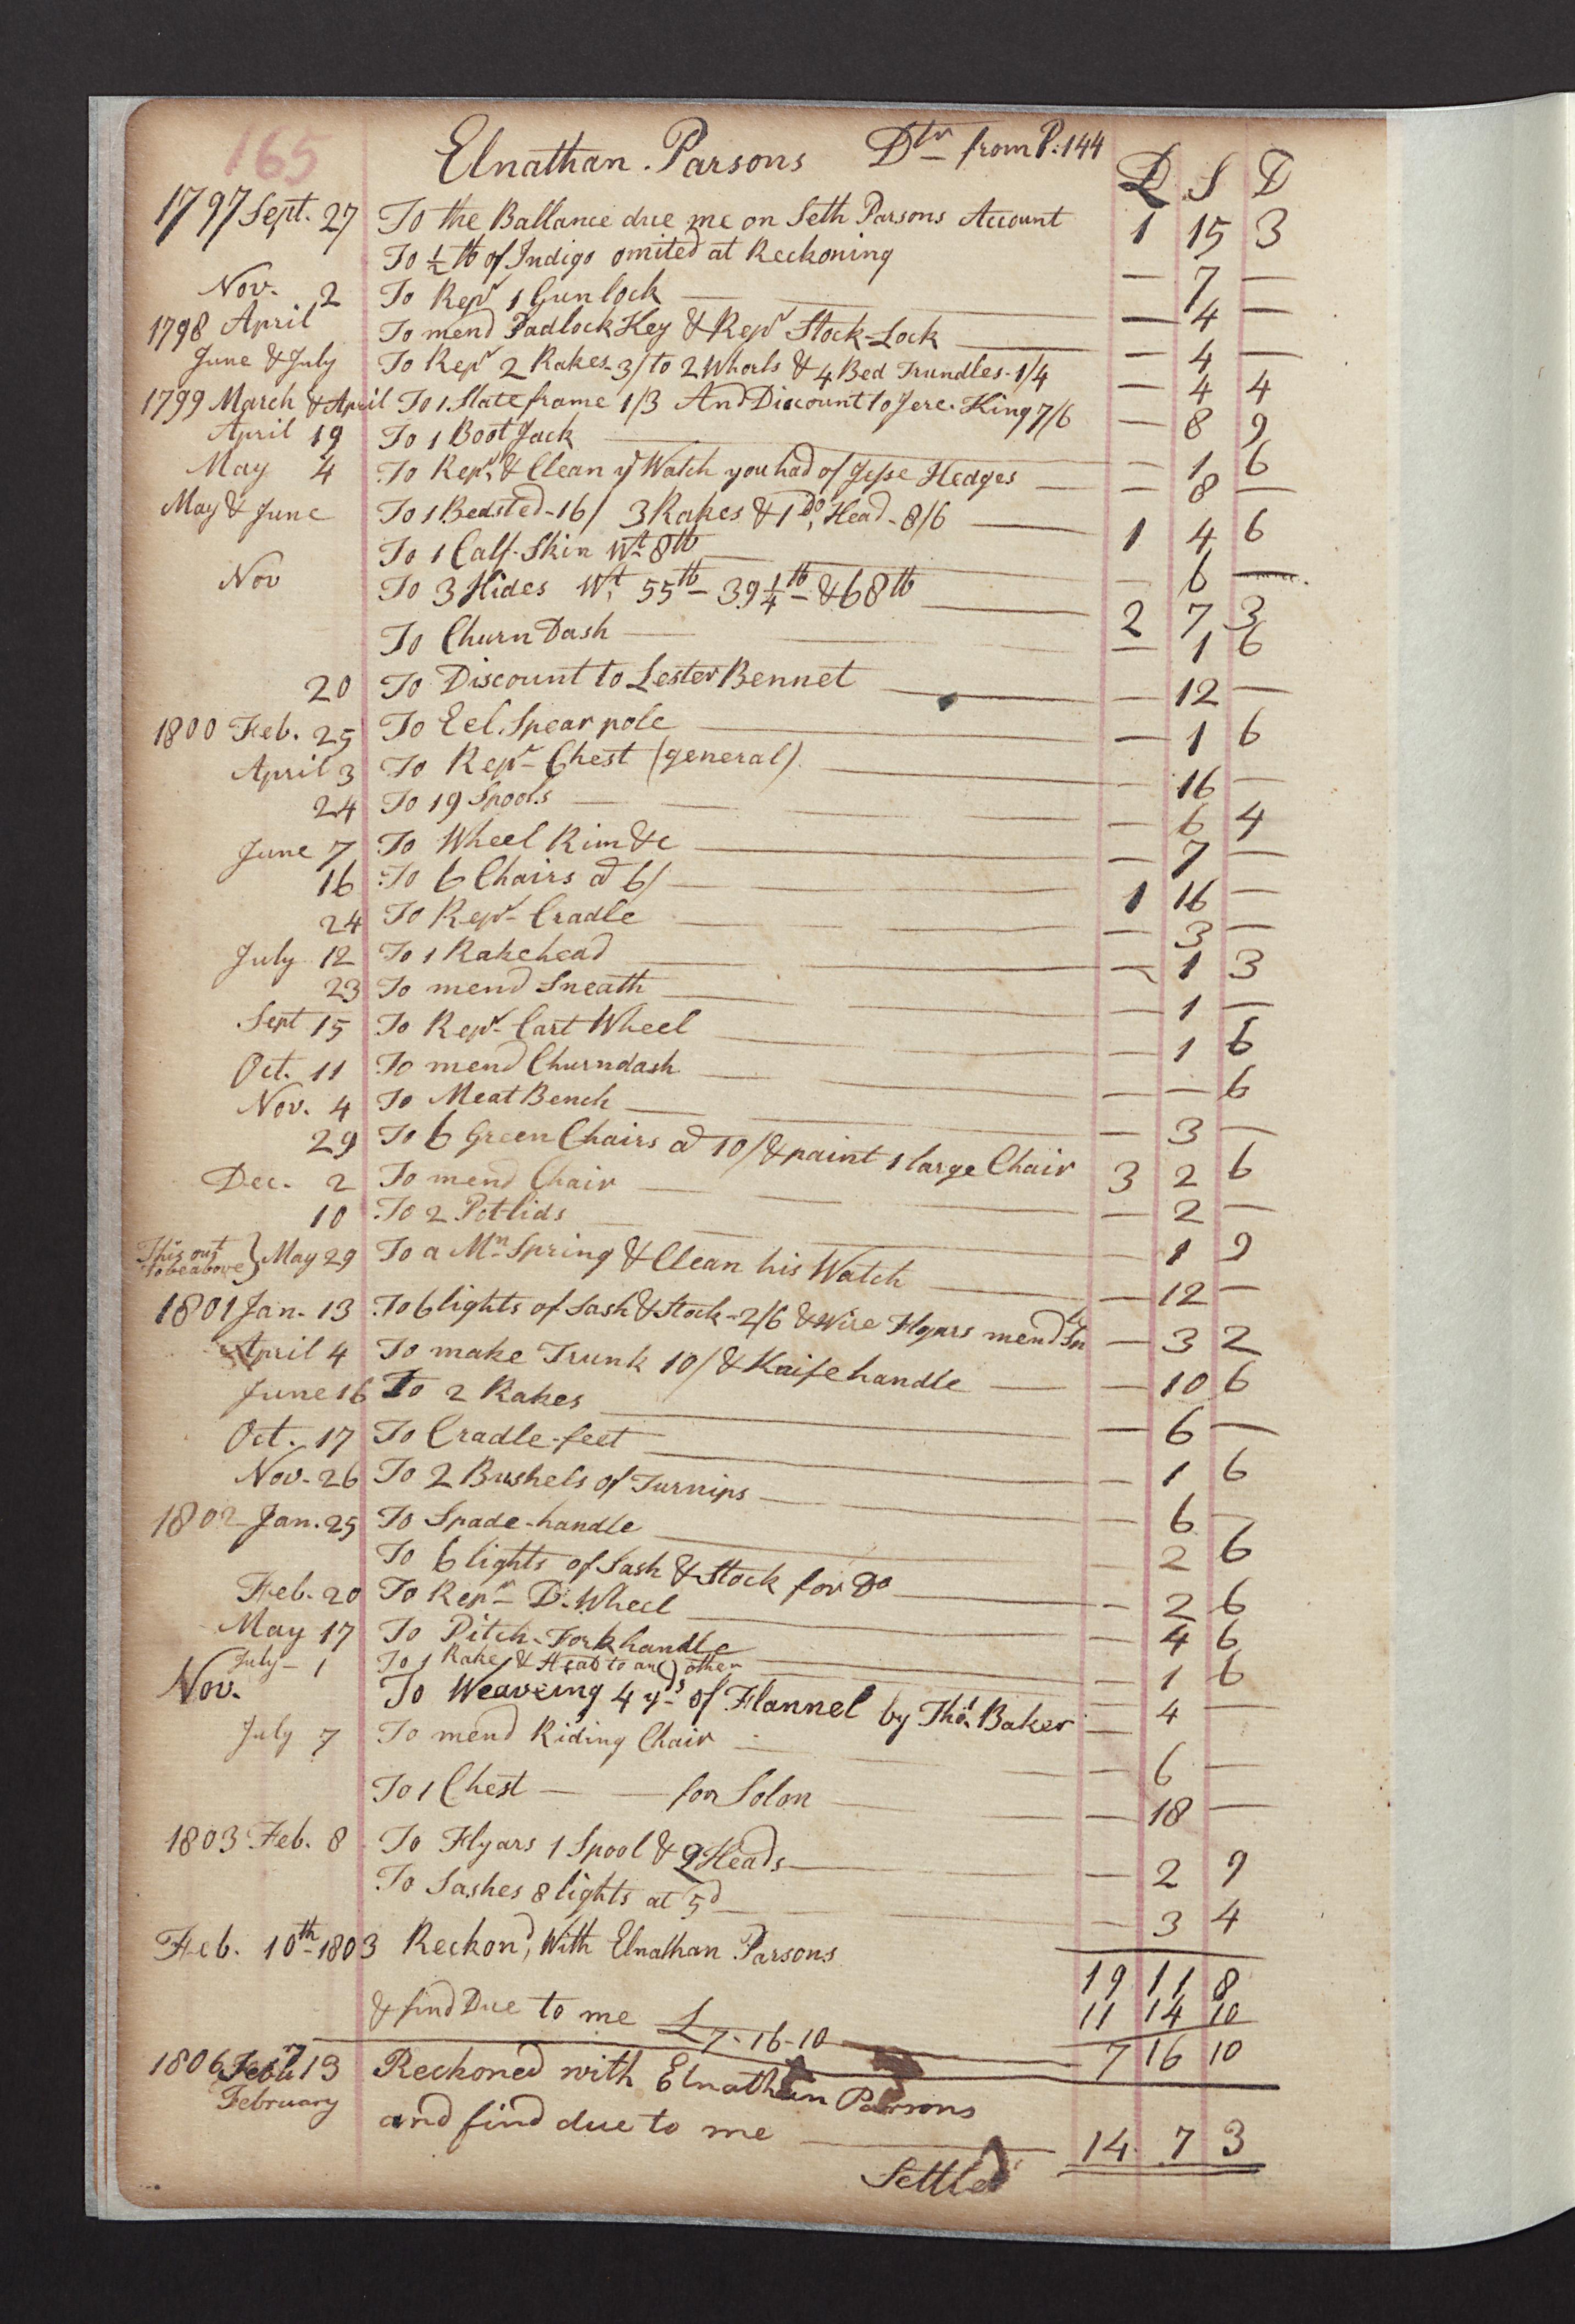 165
Elnathan. Parsons Dtr from P. 144
£ S D
1797 Sept. 27 To the Ballance due me on Seth Parsons Account 1 15 3
To ½ lb of Indigo omited at Reckoning — 7 —
Nov. 2 To Repr 1 Gun lock — 4 —
1798 April To mend Padlock Key & Repr Stock-Lock — 4 —
June & July To Repr 2 Rakes-3/ to 2 Whorls & 4 Bed Trundles-1/4 — 4 4
1799 March & April To 1 Slate frame 1/3 And Discount to Jere. King 7/6 — 8 9
April 19 To 1 Boot Jack — 1 6
May 4 To Repr & Clean ye Watch you had of Jesse Hedges — 8 —
May & June To 1 Bedsted-16/ 3 Rakes & 1 Do, Head-8/6 1 4 6
To 1 Calf-Skin Wt 8 lb — 6 —
Nov To 3 Hides Wt, 55 lb — 39¼ lb — & 68 lb 2 7 3
To Churn Dash — 1 6
20 To Discount to Lester Bennet — 12 —
1800 Feb. 25 To Eel. Spear pole — 1 6
April 3 To Repr Chest (general) — 16 —
24 To 19 Spools — 6 4
June 7 To Wheel Rim &c — 7 —
16 To 6 Chairs @ 6/ 1 16 —
24 To Repr Cradle — 3 —
July 12 To 1 Rakehead — 1 3
23 To mend Sneath — 1 —
Sept 15 To Repr Cart Wheel — 1 6
Oct. 11 To mend Churndash — — 6
Nov. 4 To Meat Bench — 3 —
29 To 6 Green Chairs @ 10/ & paint 1 large Chair 3 2 6
Dec. 2 To mend Chair — 2 —
10 To 2 Potlids — 1 9
This out to be above } May 29 To a Mn Spring & Clean his Watch — 12 —
1801 Jan. 13 To 6 lights of Sash & Stock-2/6 & Wire Flyars mend — 3 2
April 4 To make Trunk 10/ & Knife handle — 10 6
June 16 To 2 Rakes — 6 —
Oct. 17 To Cradle-feet — 1 6
Nov. 26 To 2 Bushels of Turnips — 6 —
1802 Jan. 25 To Spade-handle — 2 6
To 6 lights of Sash & Stock for Do — 2 6
Feb. 20 To Repr D. Wheel — 4 6
May 17 To Pitch-Fork handle — 1 6
July — 1 To 1 Rake, & Head to an other — 4 —
Nov. To Weaveing 4 yds of Flannel by Thos. Baker —
July 7 To mend Riding Chair — 6 —
To 1 Chest — for Solon — 18 —
1803 Feb. 8 To Flyars 1 Spool & 2 Heads — 2 9
To Sashes 8 lights at 5d — 3 4
Feb. 10th 1803 Reckond, With Elnathan Parsons 19 11 8
11 14 10
& find Due to me £7-16-10 7 16 10
1806 13 Reckoned with Elnathan Parsons
February
and find due to me 14 7 3
Settled